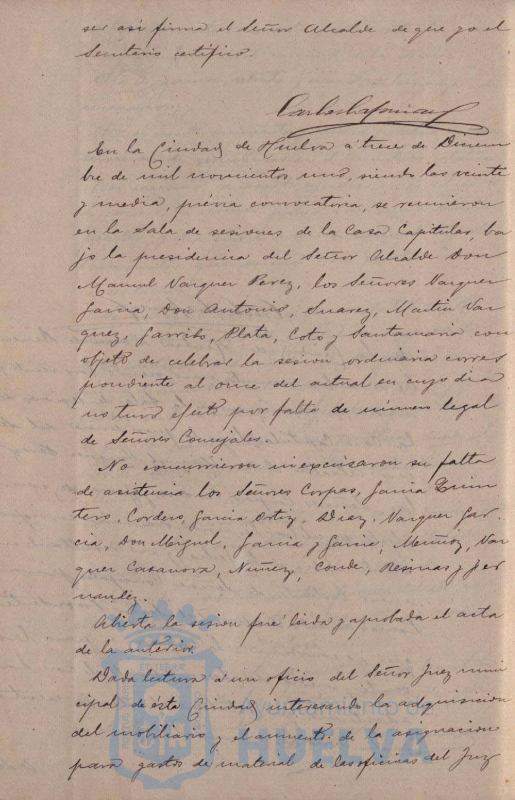 ser así firma el Señor Alcalde de que yo el
Secretario certifico.
En la Ciudad de Huelva á trece de Diciem
bre de mil novecientos uno, siendo las veinte
y media, prévia convocatoria, se reunieron
en la Sala de sesiones de la Casa Capitular, ba
jo la presidencia del Señor Alcalde Don
Manuel Vazquez Perez, los Señores Vazquez
Garcia, Don Antonio, Suarez, Martin Vaz
quez, Garrido, Plata, Coto y Santamaria con
objeto de celebrar la sesion ordinaria corres
pondiente al once del actual en cuyo dia
no tuvo efecto por falta de número legal
de Señores Concejales.
No concurrieron ni excusaron su falta
de asistencia los Señores Corpas, Garcia Quin
tero, Cordero, Garcia Ortiz, Diaz, Vazquez Gar
cia, Don Miguel, Garcia y Garcia, Muñoz, Vaz
quez Casanova, Nuñez, Conde, y Fer
nandez.
Abierta la sesion fué leida y aprobada el acta
de la anterior.
Dada lectura á un oficio del Señor Juez muni
cipal de ésta Ciudad interesando la adquisicion
del mobiliario y el aumento de la asignacion
para gastos de material de las oficinas del Juz
HUELVA